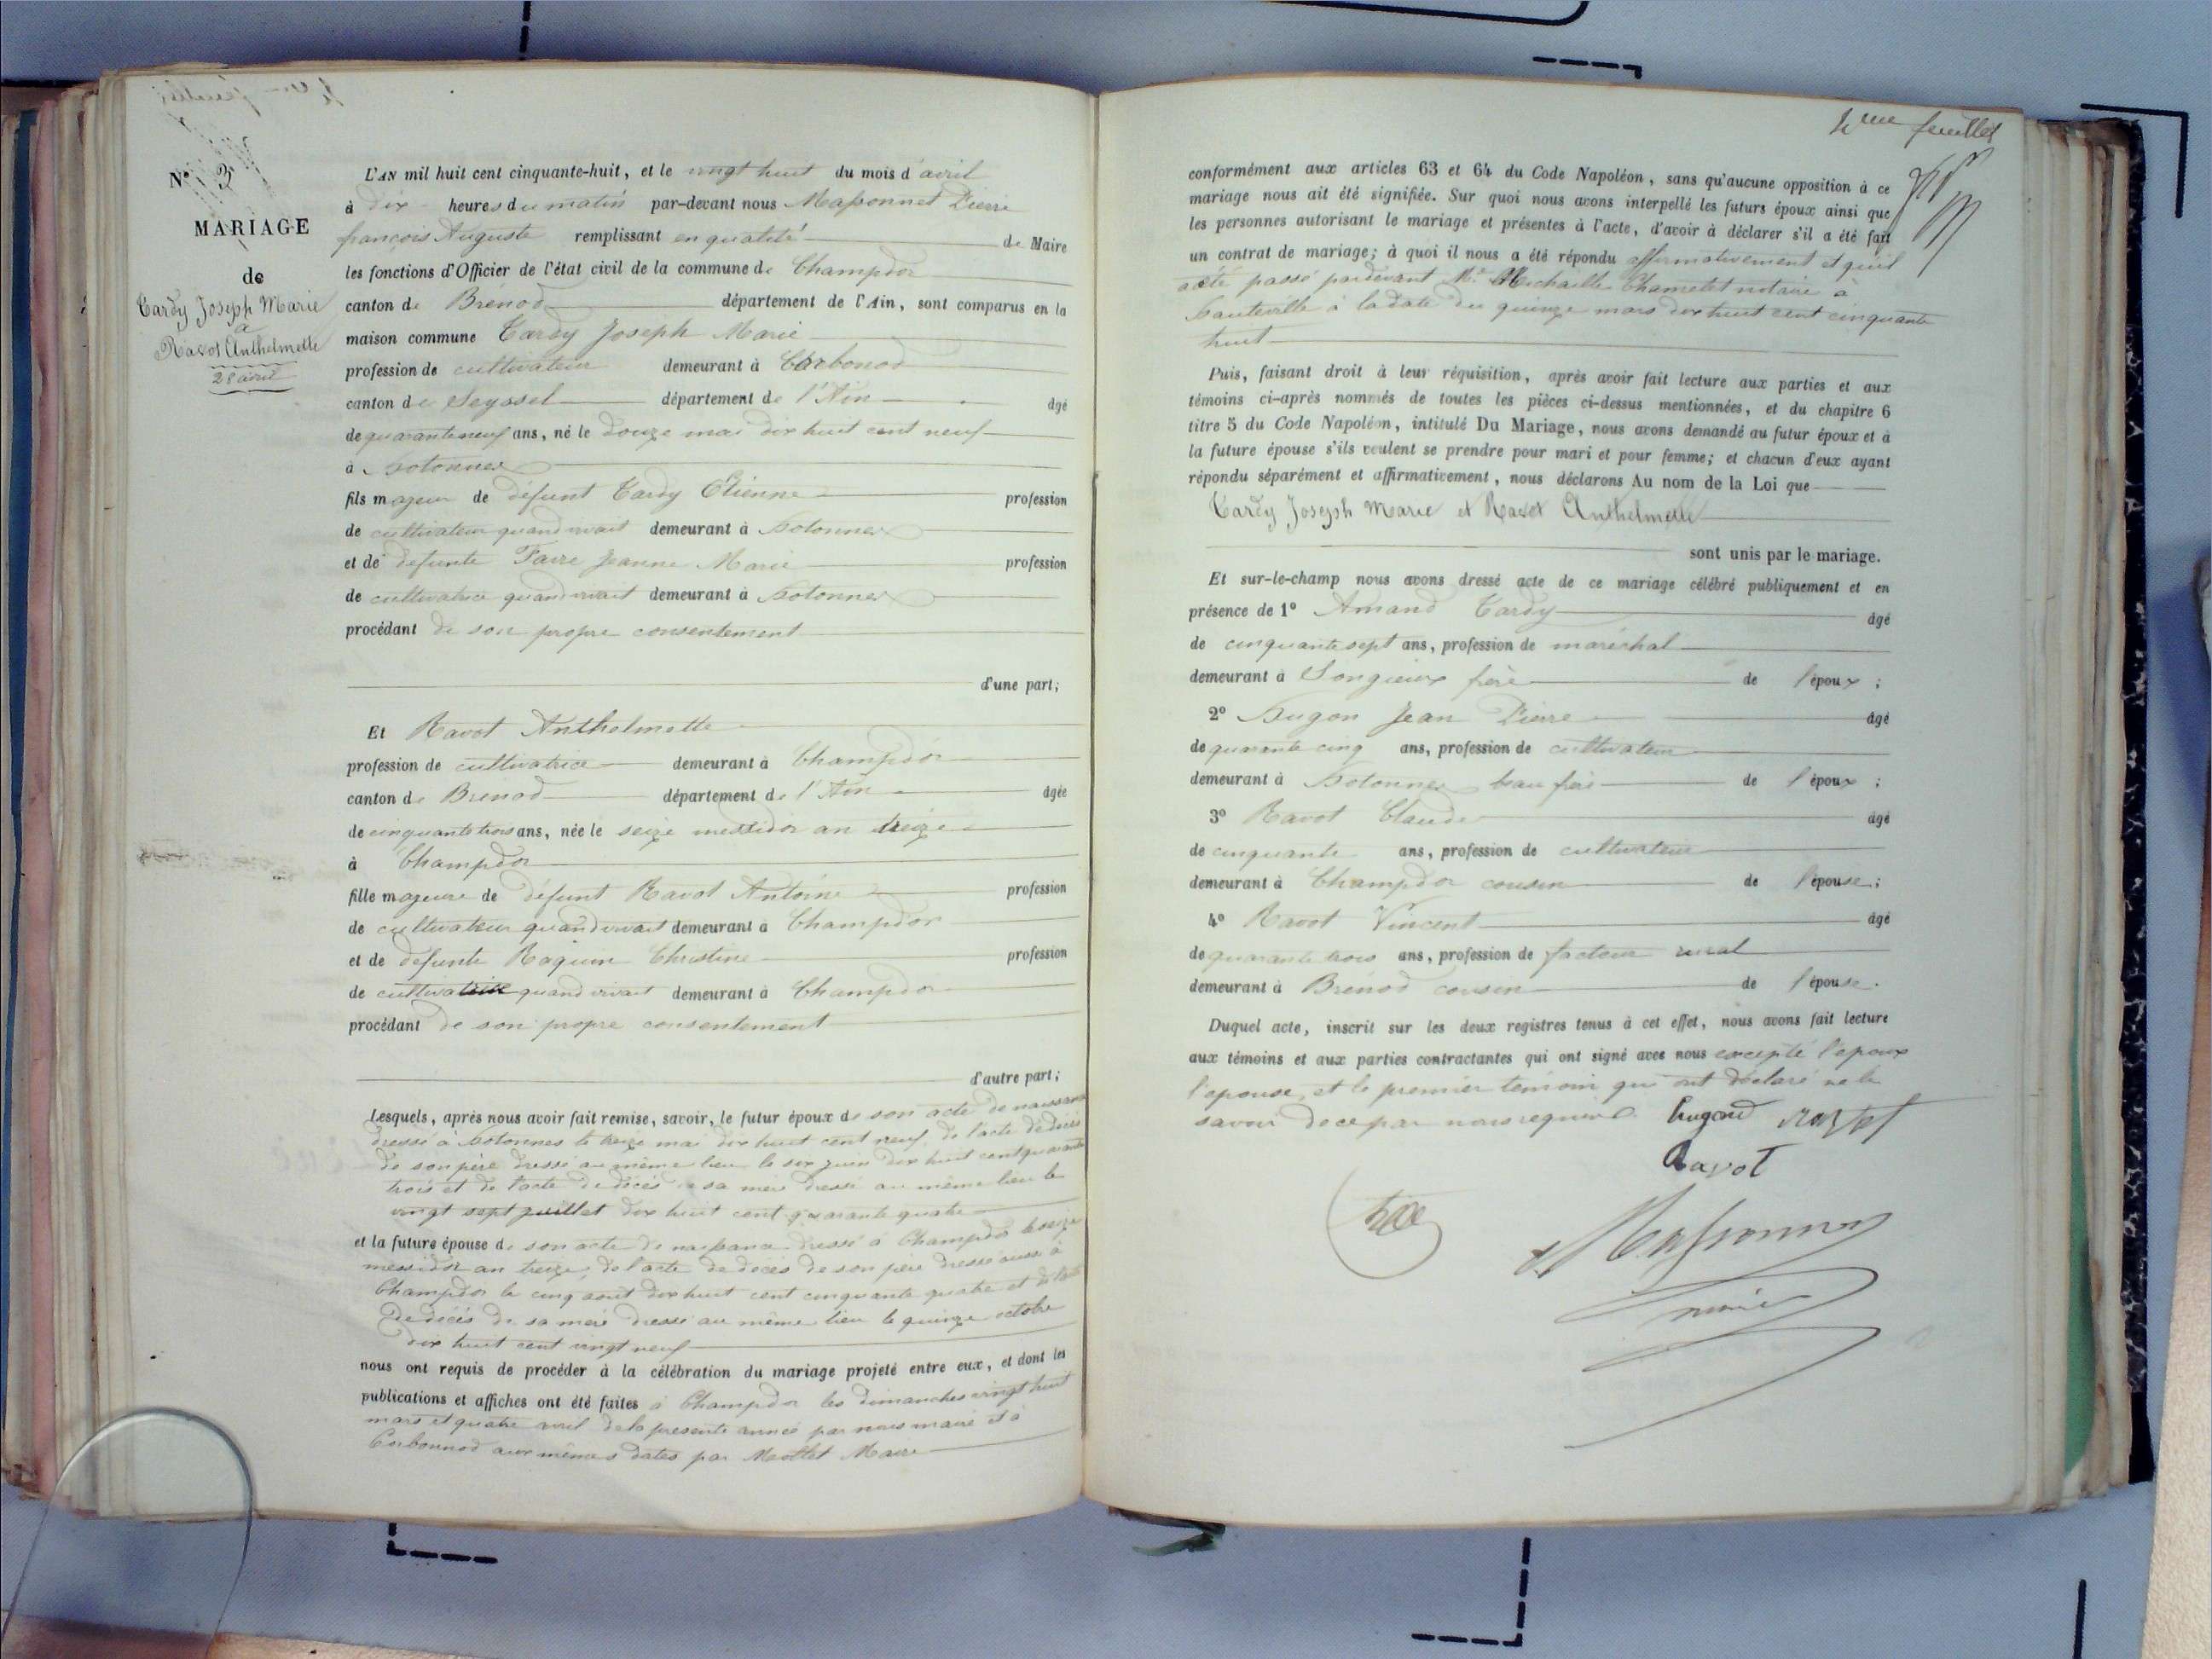 N° 3
MARIAGE
de
Tardy Joseph Marie
à
Ravot Anthelmette
28 avril
L'AN mil huit cent cinquante-huit, et le vingt huit du mois d'avril
à dix heures du matin par-devant nous Massonnet Pierre
françois Auguste remplissant en qualité de Maire
les fonctions d'Officier de l'état civil de la commune de Champdor
canton de Brénod département de l'Ain, sont comparus en la
maison commune Tardy Joseph Marie
profession de cultivateur demeurant à Corbonod
canton de Seyssel département de l'Ain âgé
de quarante neuf ans, né le douze mai dix huit cent neuf
à Hotonnes
fils majeur de défunt Tardy Etienne profession
de cultivateur quand vivait demeurant à Hotonnes
et de défunte Favre Jeanne Marie profession
de cultivatrice quand vivait demeurant à Hotonnes
procédant de son propre consentement
d'une part;
Et Ravot Anthelmette
profession de cultivatrice demeurant à Champdor
canton de Brenod département de l'Ain âgée
de cinquante trois ans, née le seize messidor an treize
à Champdor
fille majeure de défunt Ravot Antoine profession
de cultivateur quand vivait demeurant à Champdor
et de défunte Christine profession
de cultivatrice quand vivait demeurant à Champdor
procédant de son propre consentement
d'autre part;
Lesquels, après nous avoir fait remise, savoir, le futur époux de son acte de naissance
dressé à Hotonnes le treize mai dix huit cent neuf, de l'acte de décès
de son père dressé au même lieu le six juin dix huit cent quarante
trois et de l'acte de décès de sa mère dressé au même lieu le
vingt sept juillet dix huit cent quarante quatre
et la future épouse de son acte de naissance dressé à Champdor le seize
messidor an treize, de l'acte de décès de son père dressé aussi à
Champdor le cinq août dix huit cent cinquante quatre et de l'acte
de décès de sa mère dressé au même lieu le quinze octobre
dix huit cent vingt neuf
nous ont requis de procéder à la célébration du mariage projeté entre eux, et dont les
publications et affiches ont été faites à Champdor les dimanches vingt huit
mars et quatre avril de la présente année par nous maire et à
Corbonnod aux mêmes dates par Mottet Maire
4me feuillet
conformément aux articles 63 et 64 du Code Napoléon, sans qu'aucune opposition à ce
mariage nous ait été signifiée. Sur quoi nous avons interpellé les futurs époux ainsi que
les personnes autorisant le mariage et présentes à l'acte, d'avoir à déclarer s'il a été fait
un contrat de mariage; à quoi il nous a été répondu affirmativement et qu'il
a été passé pardevant Me Michaille Chamelet notaire à
hauteville à la date du quinze mars dix huit cent cinquante
huit
Puis, faisant droit à leur réquisition, après avoir fait lecture aux parties et aux
témoins ci-après nommés de toutes les pièces ci-dessus mentionnées, et du chapitre 6
titre 5 du Code Napoléon, intitulé Du Mariage, nous avons demandé au futur époux et à
la future épouse s'ils veulent se prendre pour mari et pour femme; et chacun d'eux ayant
répondu séparément et affirmativement, nous déclarons Au nom de la Loi que
Tardy Joseph Marie et Ravot Anthelmette
sont unis par le mariage.
Et sur-le-champ nous avons dressé acte de ce mariage célébré publiquement et en
présence de 1° Amand Tardy âgé
de cinquante sept ans, profession de maréchal
demeurant à Songieux frère de l'époux;
2° Hugon Jean Pierre âgé
de quarante cinq ans, profession de cultivateur
demeurant à Hotonnes beau frère de l'époux;
3° Ravot Claude âgé
de cinquante ans, profession de cultivateur
demeurant à Champdor cousin de l'épouse;
4° Ravot Vincent âgé
de quarante trois ans, profession de facteur rural
demeurant à Brénod cousin de l'épouse.
Duquel acte, inscrit sur les deux registres tenus à cet effet, nous avons fait lecture
aux témoins et aux parties contractantes qui ont signé avec nous excepté l'époux
l'épouse, et le premier témoin qui ont déclaré ne le
savoir de ce par nous requis. hugond ravot
Ravot
Massonnet
maire